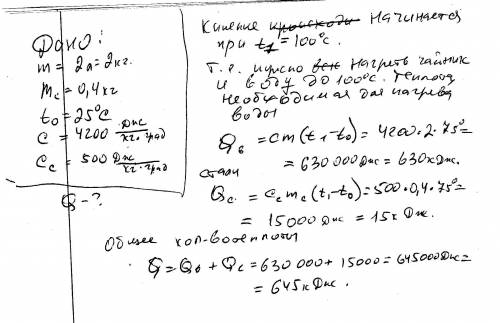 Дано:
m = 2л = 2 кг.
mс = 0,4 кг
t0 = 25°C
c = 4200 Дж/кг·град
cс = 500 Дж/кг·град
Q - ?
Кипение начинается
при t1 = 100°C.
Т.е. нужно нагреть чайник
и воду до 100°C. Теплота
необходимая для нагрева
воды
Qв = cm(t1-t0) = 4200·2·75°=
= 630 000 Дж = 630 кДж.
стали
Qс = cс mс (t1-t0) = 500·0,4·75°=
= 15000 Дж = 15 кДж.
Общее кол-во теплоты
Q = Qв + Qс = 630 000 + 15000 = 645000 Дж =
= 645 кДж.